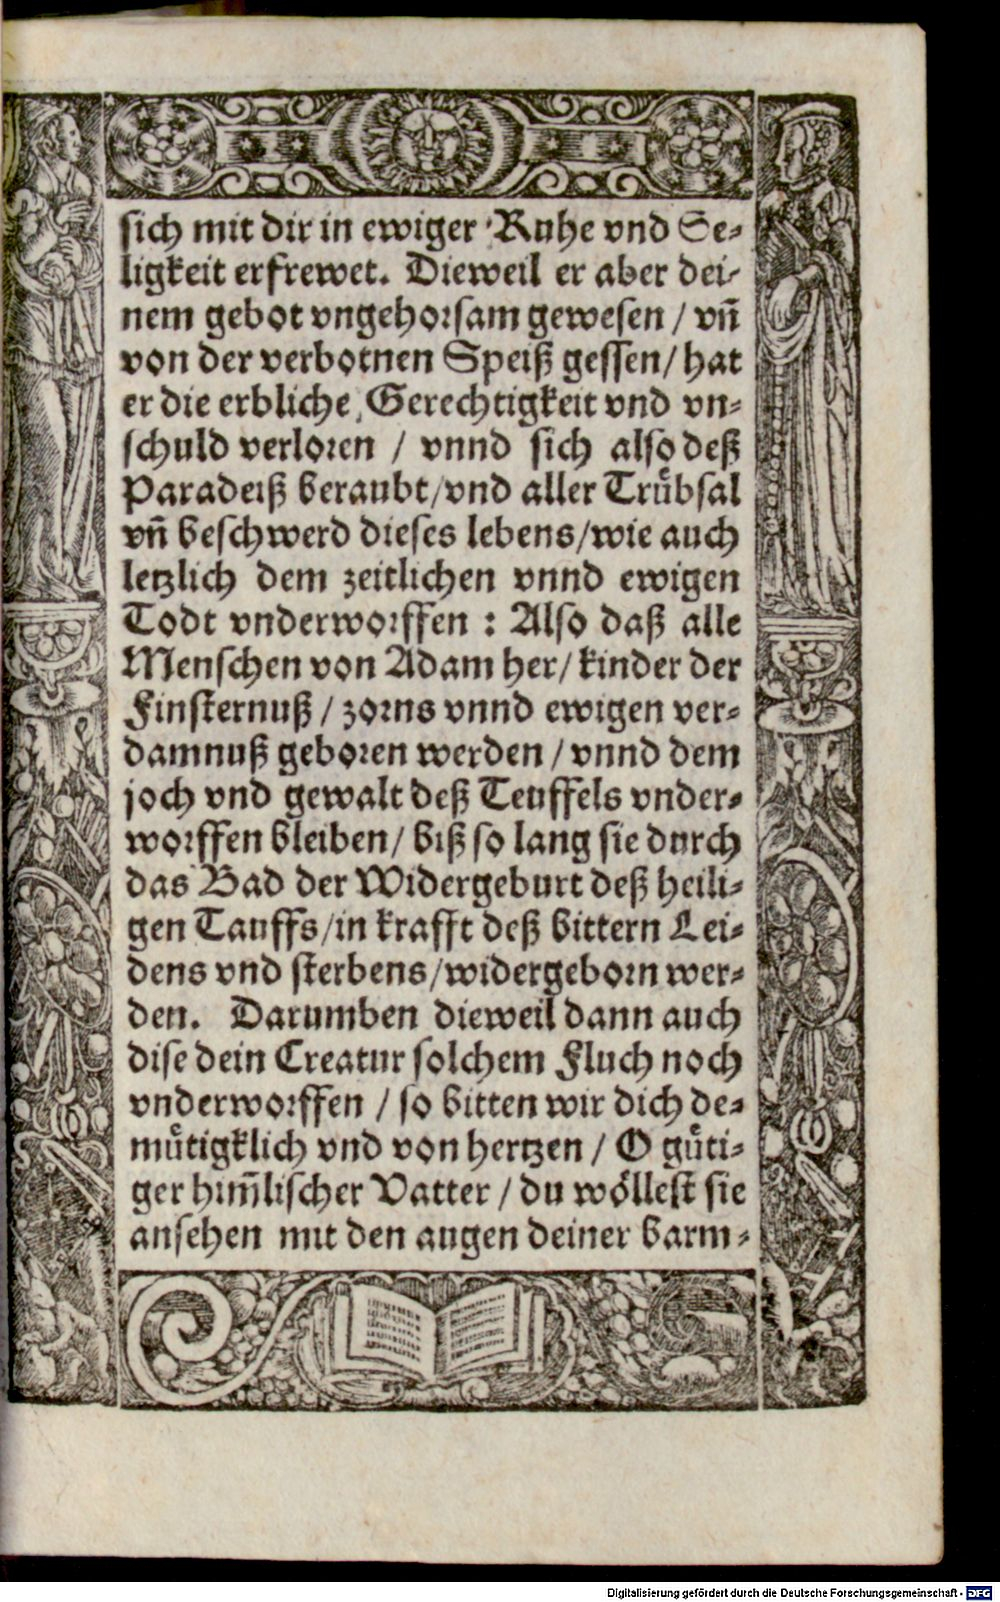 sich mit dir in ewiger Ruhe vnd Se-
ligkeit erfrewet. Dieweil er aber dei-
nem gebot vngehorsam gewesen / vn̄
von der verbotnen Speiß gessen / hat
er die erbliche Gerechtigkeit vnd vn-
schuld verloren / vnnd sich also deß
Paradeiß beraubt / vnd aller Truͤbsal
vn̄ beschwerd dieses lebens / wie auch
letzlich dem zeitlichen vnnd ewigen
Todt vnderworffen : Also daß alle
Menschen von Adam her / kinder der
Finsternuß / zorns vnnd ewigen ver-
damnuß geboren werden / vnnd dem
joch vnd gewalt deß Teuffels vnder-
worffen bleiben / biß so lang sie durch
das Bad der Widergeburt deß heili-
gen Tauffs / in krafft deß bittern Lei-
dens vnd sterbens / widergeborn wer-
den. Darumben dieweil dann auch
dise dein Creatur solchem Fluch noch
vnderworffen / so bitten wir dich de-
muͤtigklich vnd von hertzen / O guͤti-
ger him̄lischer Vatter / du woͤllest sie
ansehen mit den augen deiner barm-
Digitalisierung gefördert durch die Deutsche Forschungsgemeinschaft - DFG